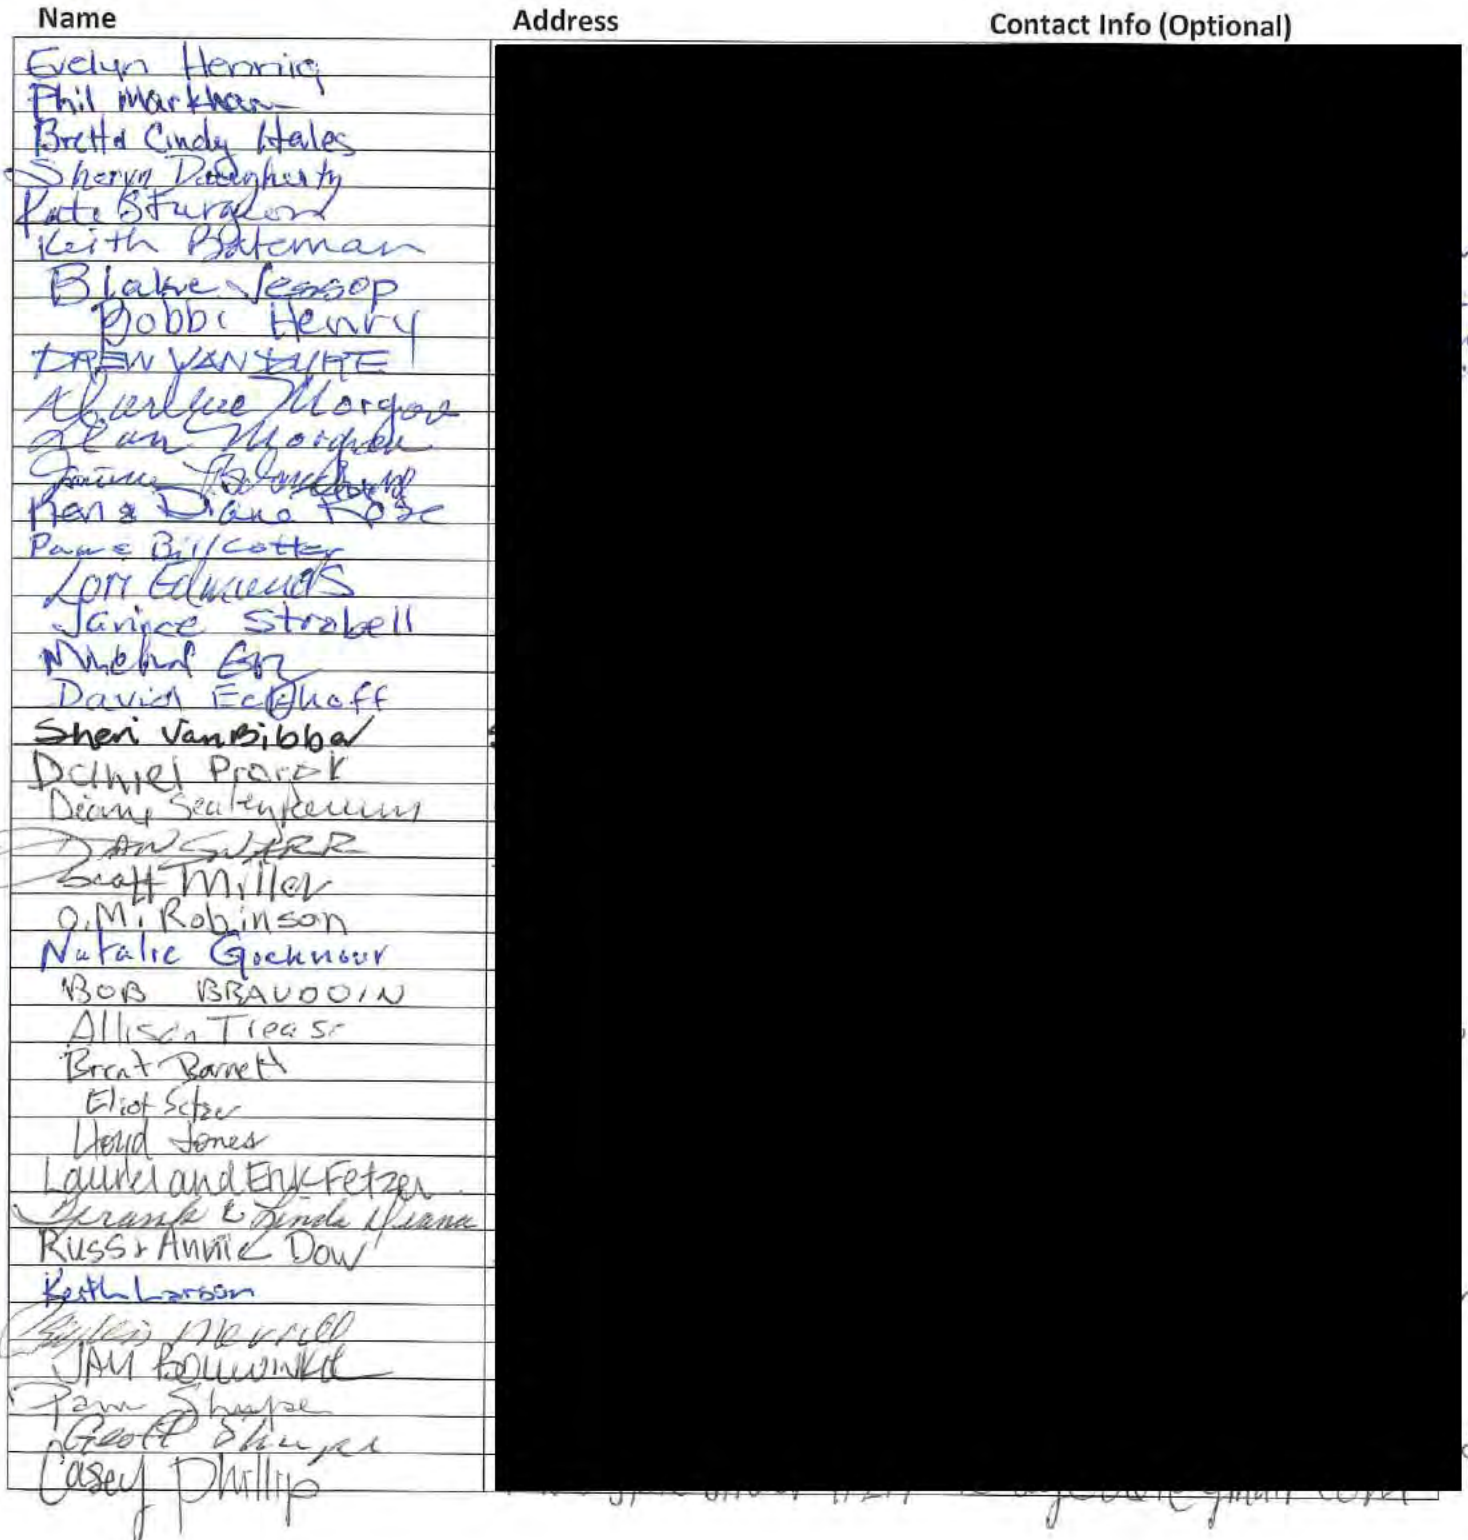 Name Address Contact Info (Optional)
Evelyn Hennig
Phil Markham
Brett & Cindy Hales
Sheryn Daugherty
Kate Sturgeon
Keith Bateman
Blake Jessop
Bobbi Henry
DREW VAN DYKE
Morgan
Morgan
Ken & Diane Rose
Pam & Bill Cotter
Lori Edmunds
Janice Strobell
David Eckhoff
Sheri VanBibber
Daniel Prorok
Diane
DAN SNARR
Scott Miller
O.M. Robinson
Natalie Gochnour
BOB BRAUDOIN
Allison Trease
Brent Barnett
Eliot Setzer
Lloyd Jones
Laurel and Erik Fetzer
Frank & Linda
Russ & Annie Dow
Keith Larson
Merrill
JAY BOLLWINKEL
Pam Shupe
Geoff Shupe
Casey Phillip